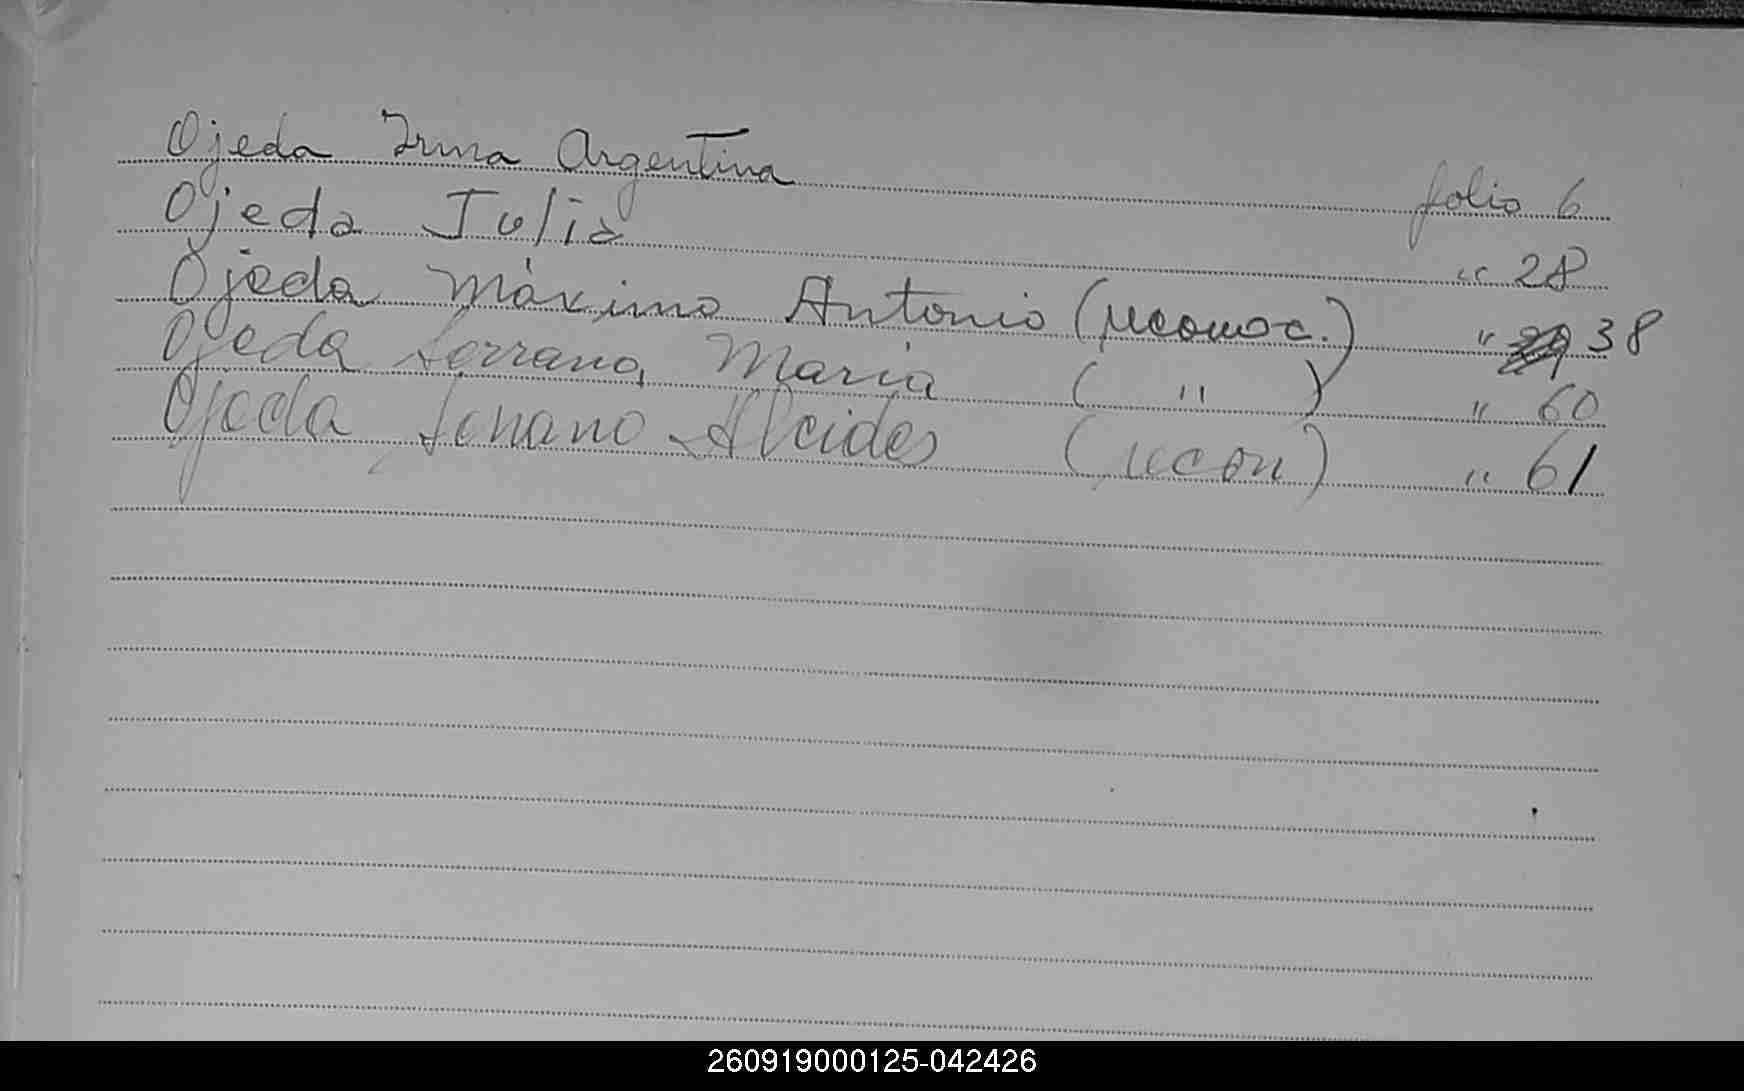 Ojeda Irma Argentina folio 6
Ojeda Julia " 28
Ojeda Máximo Antonio (reconoc.) " 38
Ojeda Serrano, María ( " ) " 60
Ojeda Serrano Alcides (recon) " 61
260919000125-042426